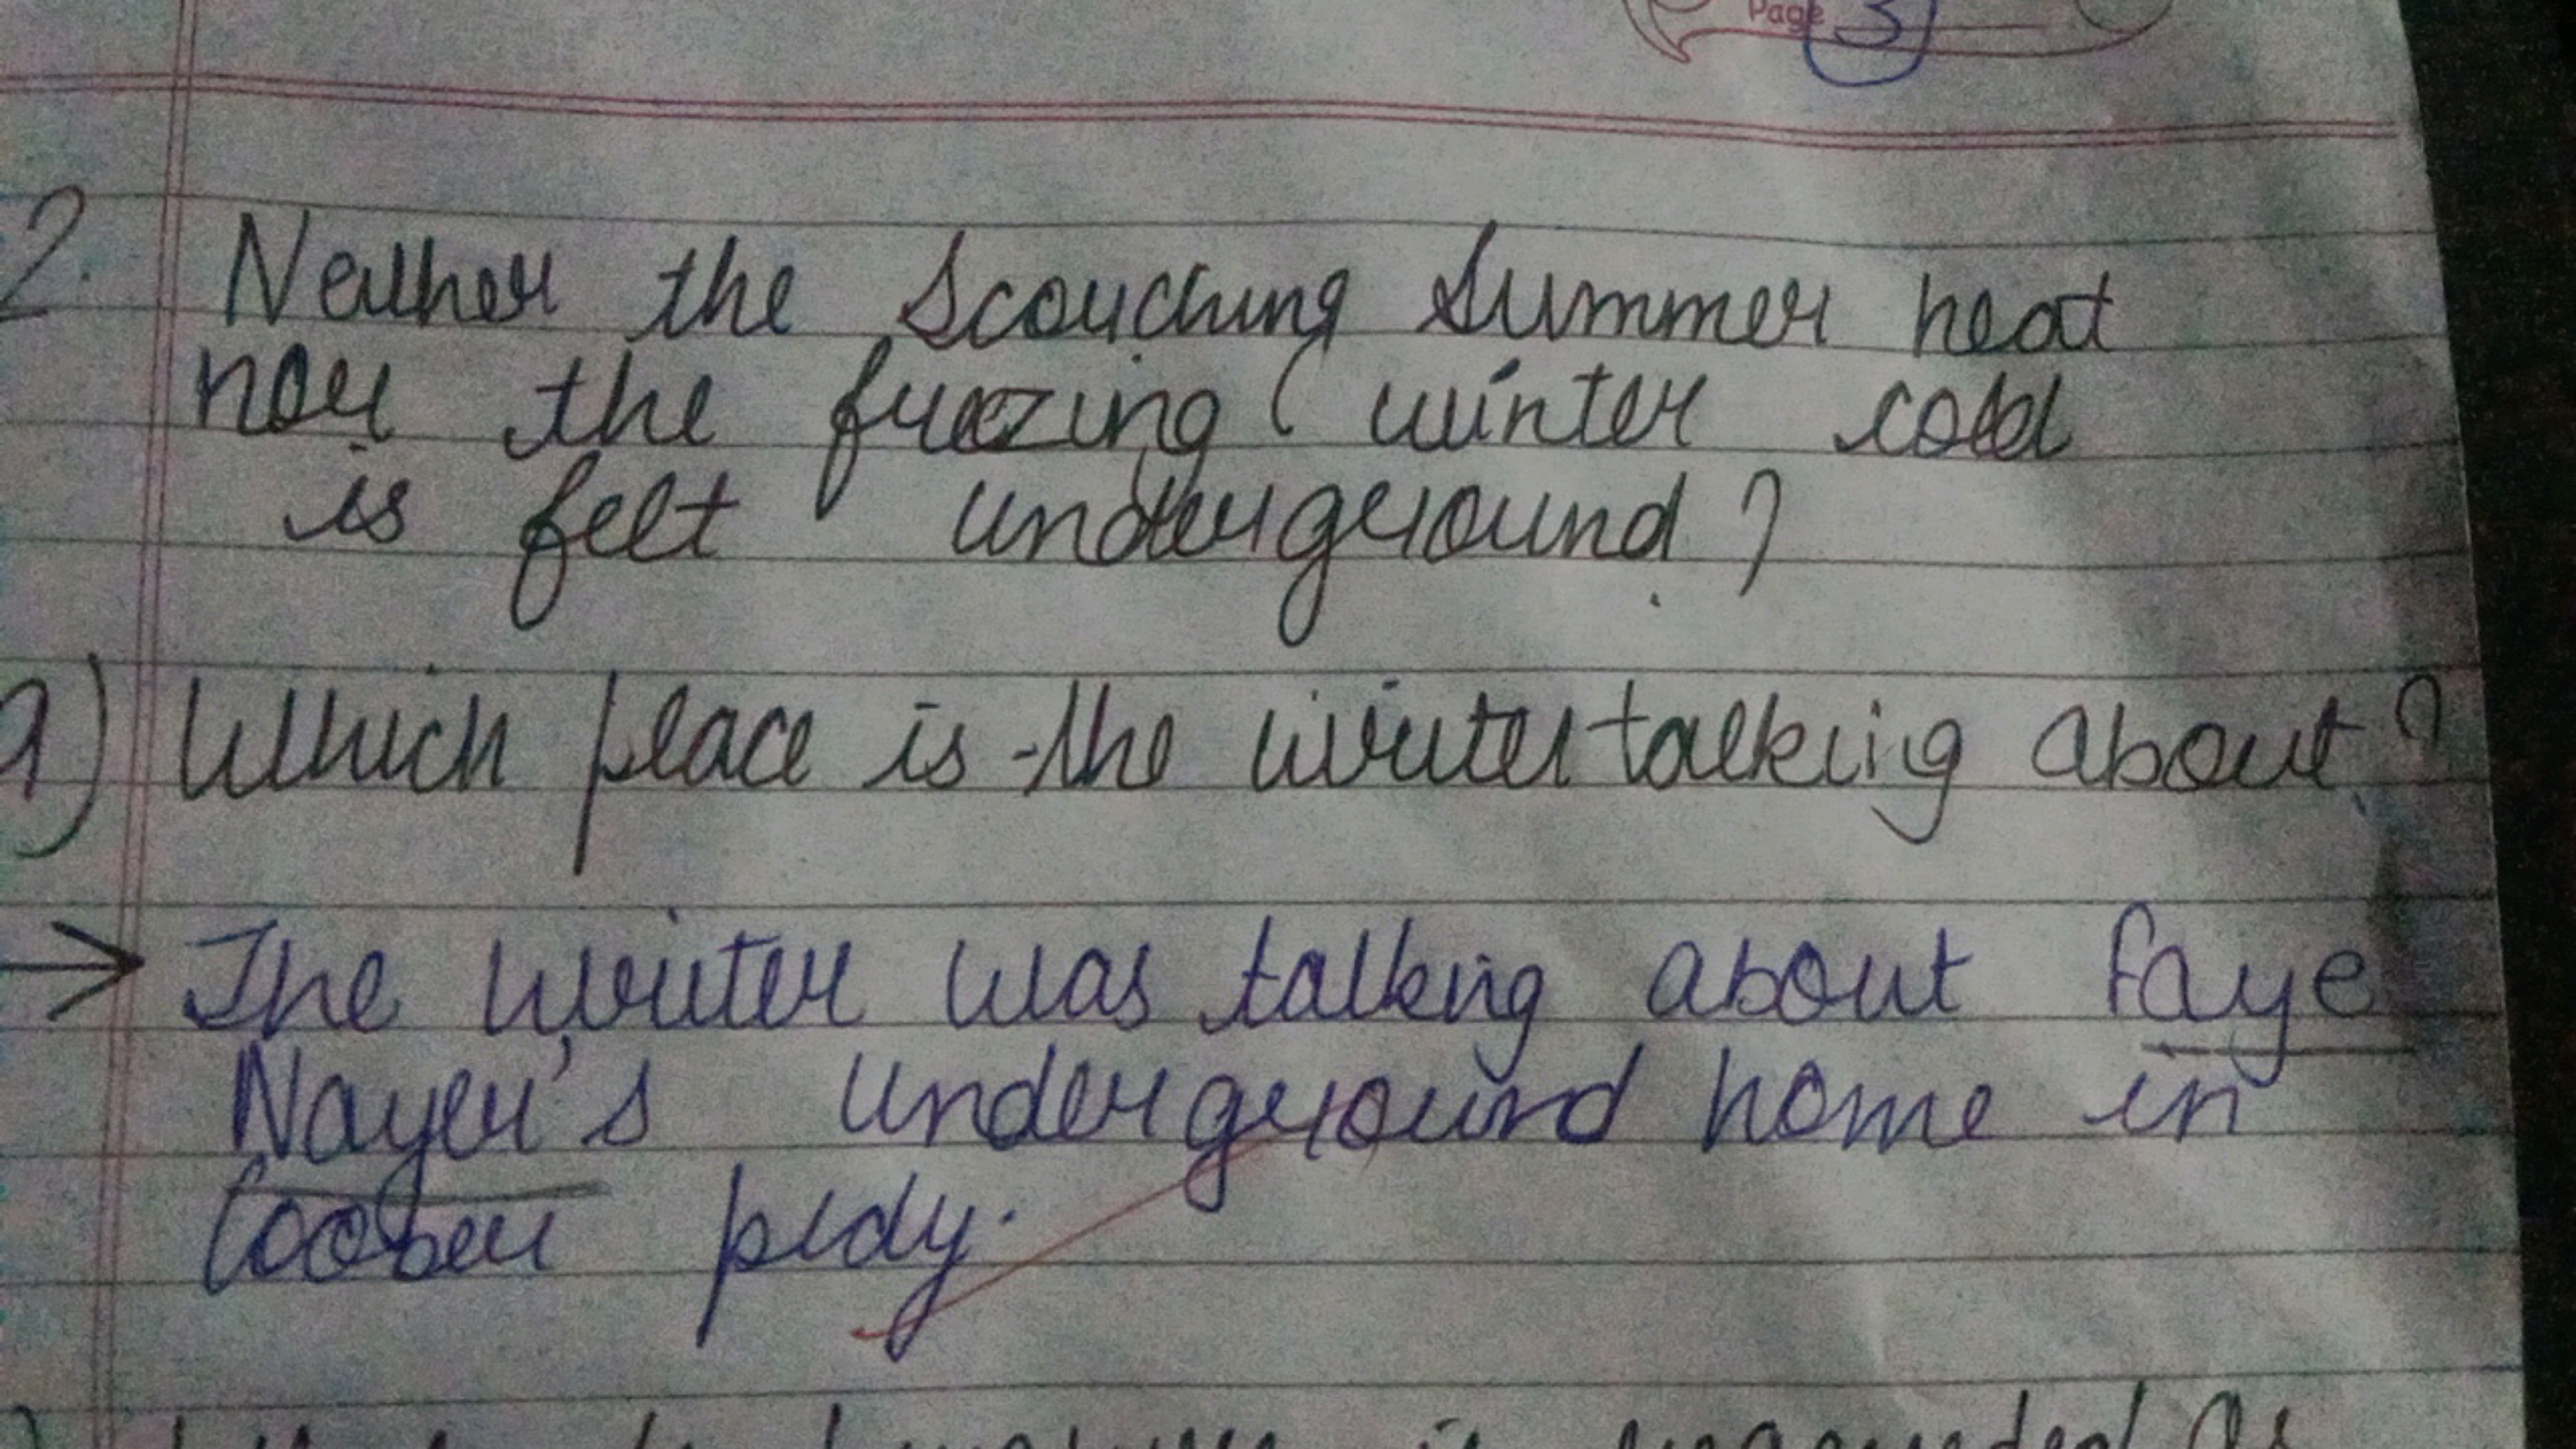 Page 3
2. Neither the Scorching Summer heat
nor the freezing winter cold
is felt underground?
a) Which place is the writer talking about?
→ The writer was talking about Faye
Nayer's underground home in
Coober pedy.
is regarded as